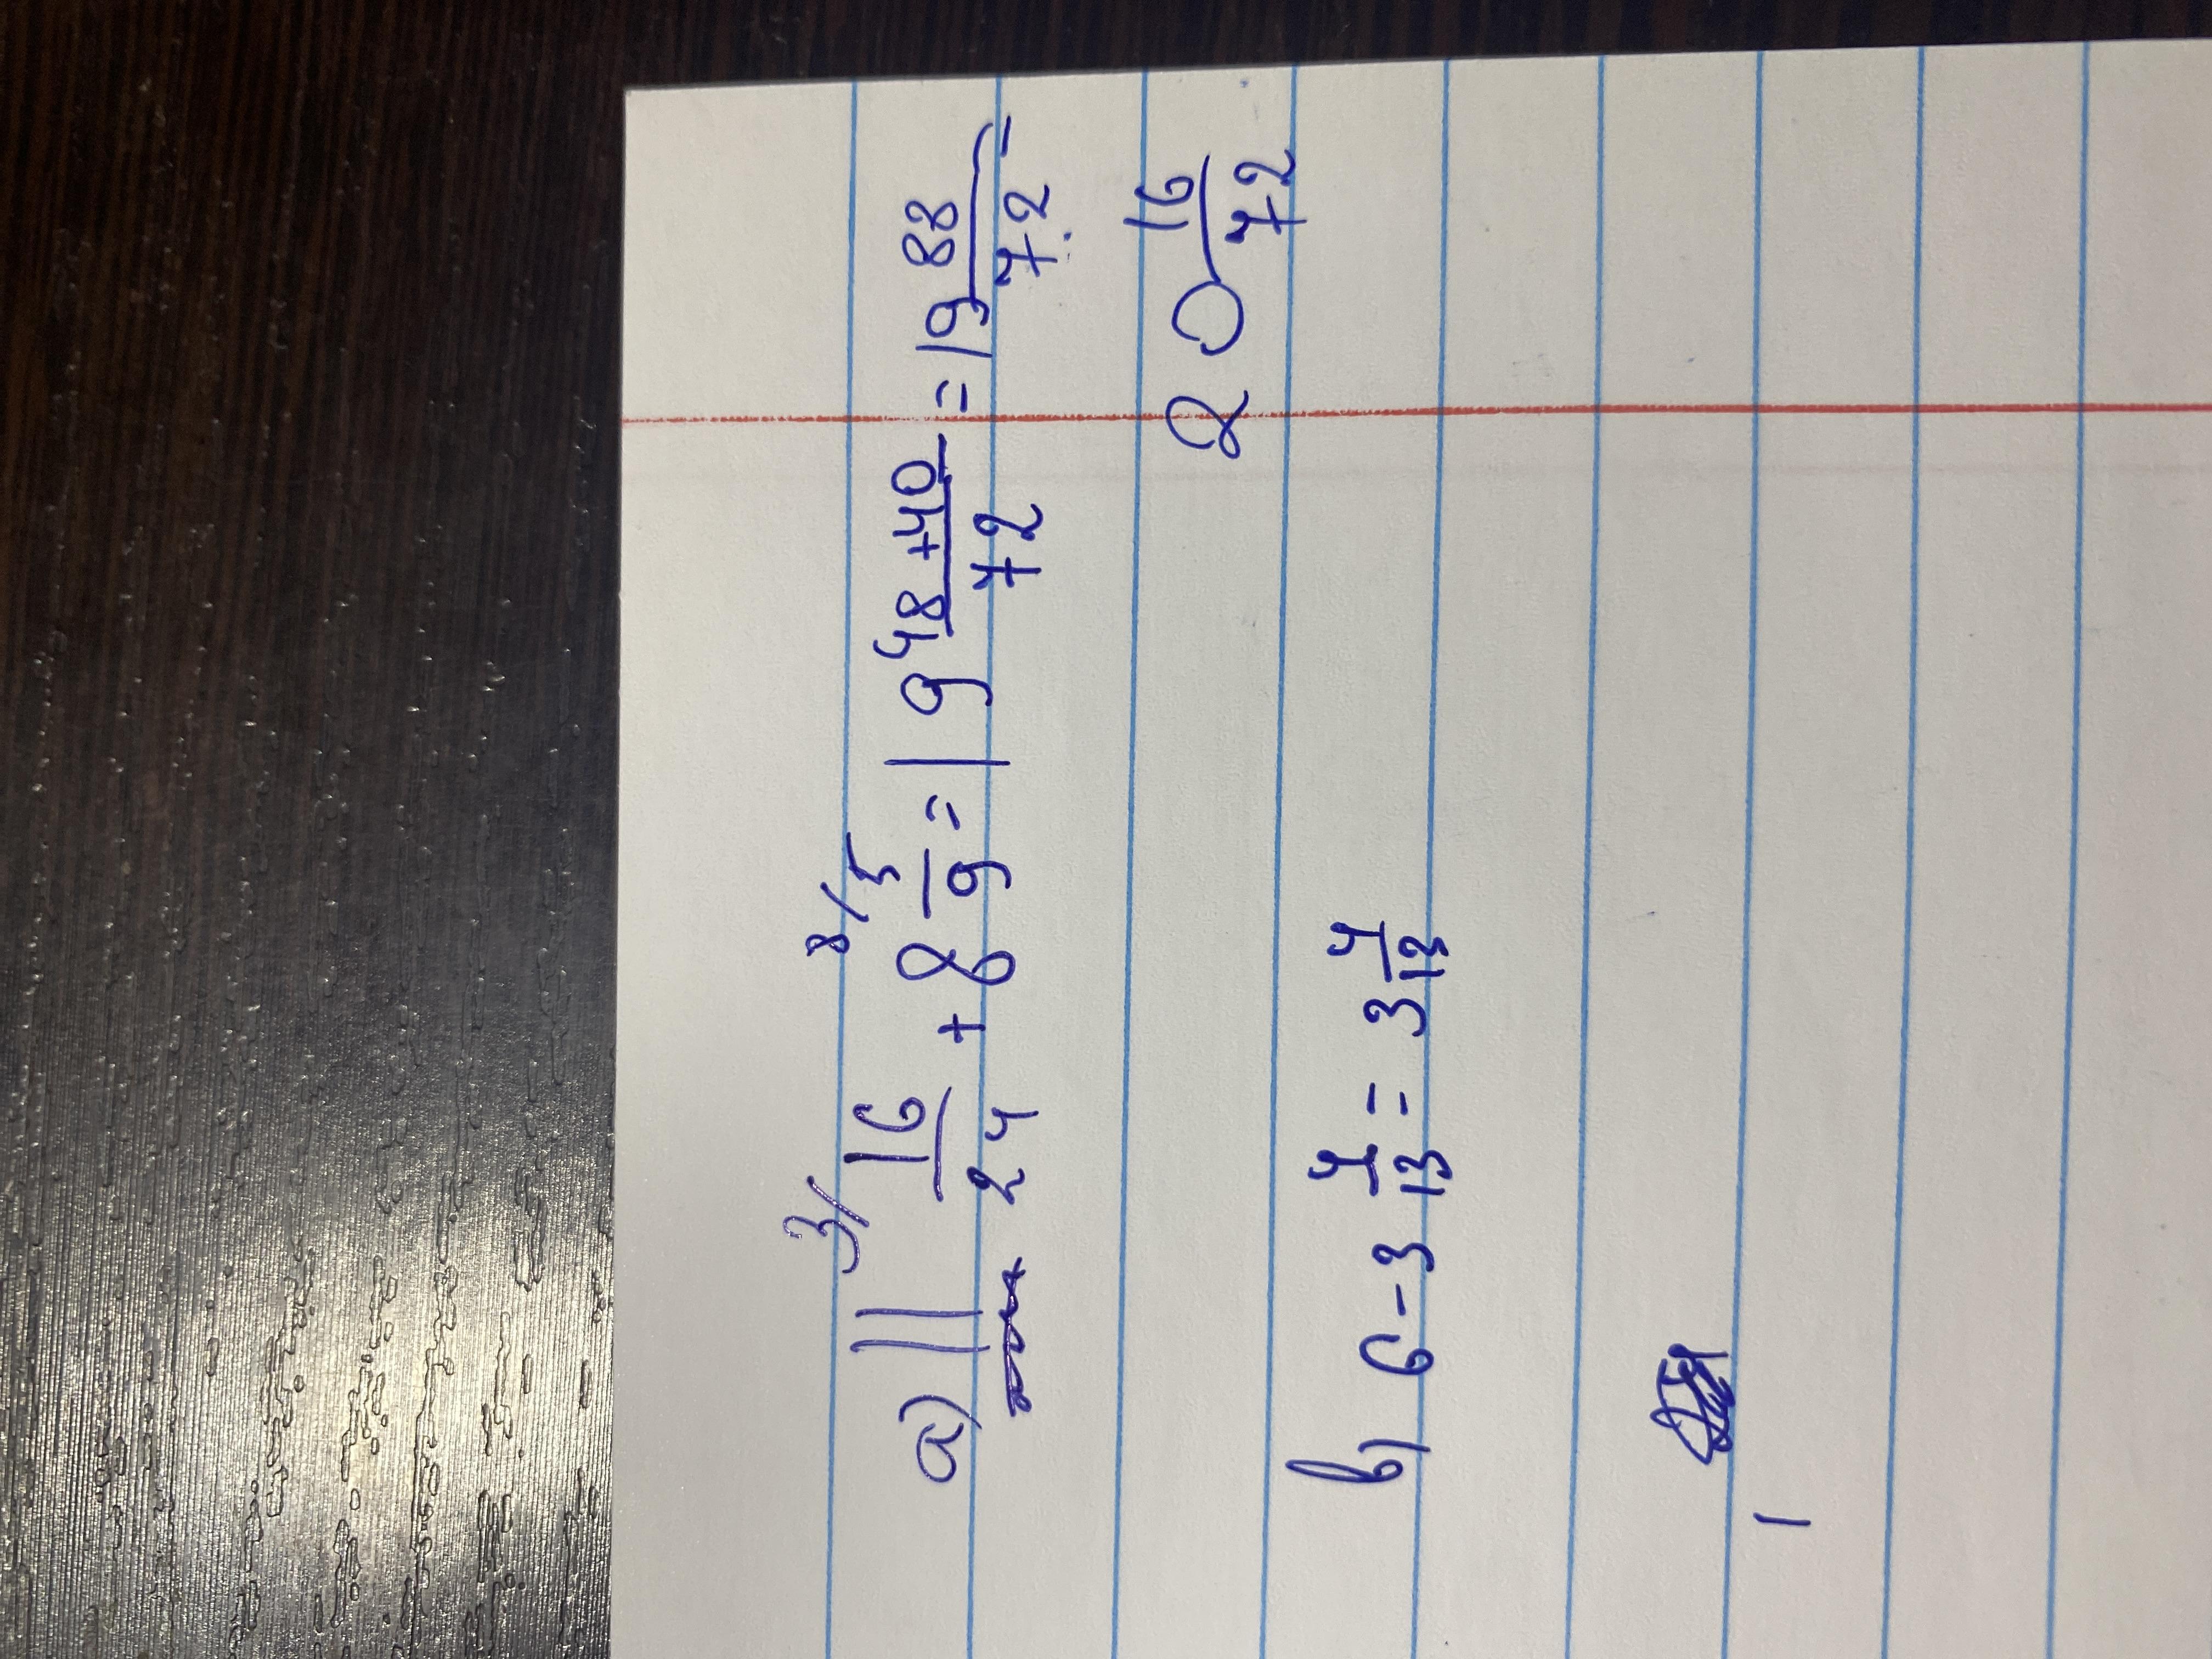 a) 11 3/ 16/24 + 8 8/ 5/9 = 19 48+40/72 = 19 88/72 =
20 16/72
b) 6 - 3 4/13 = 3 4/13